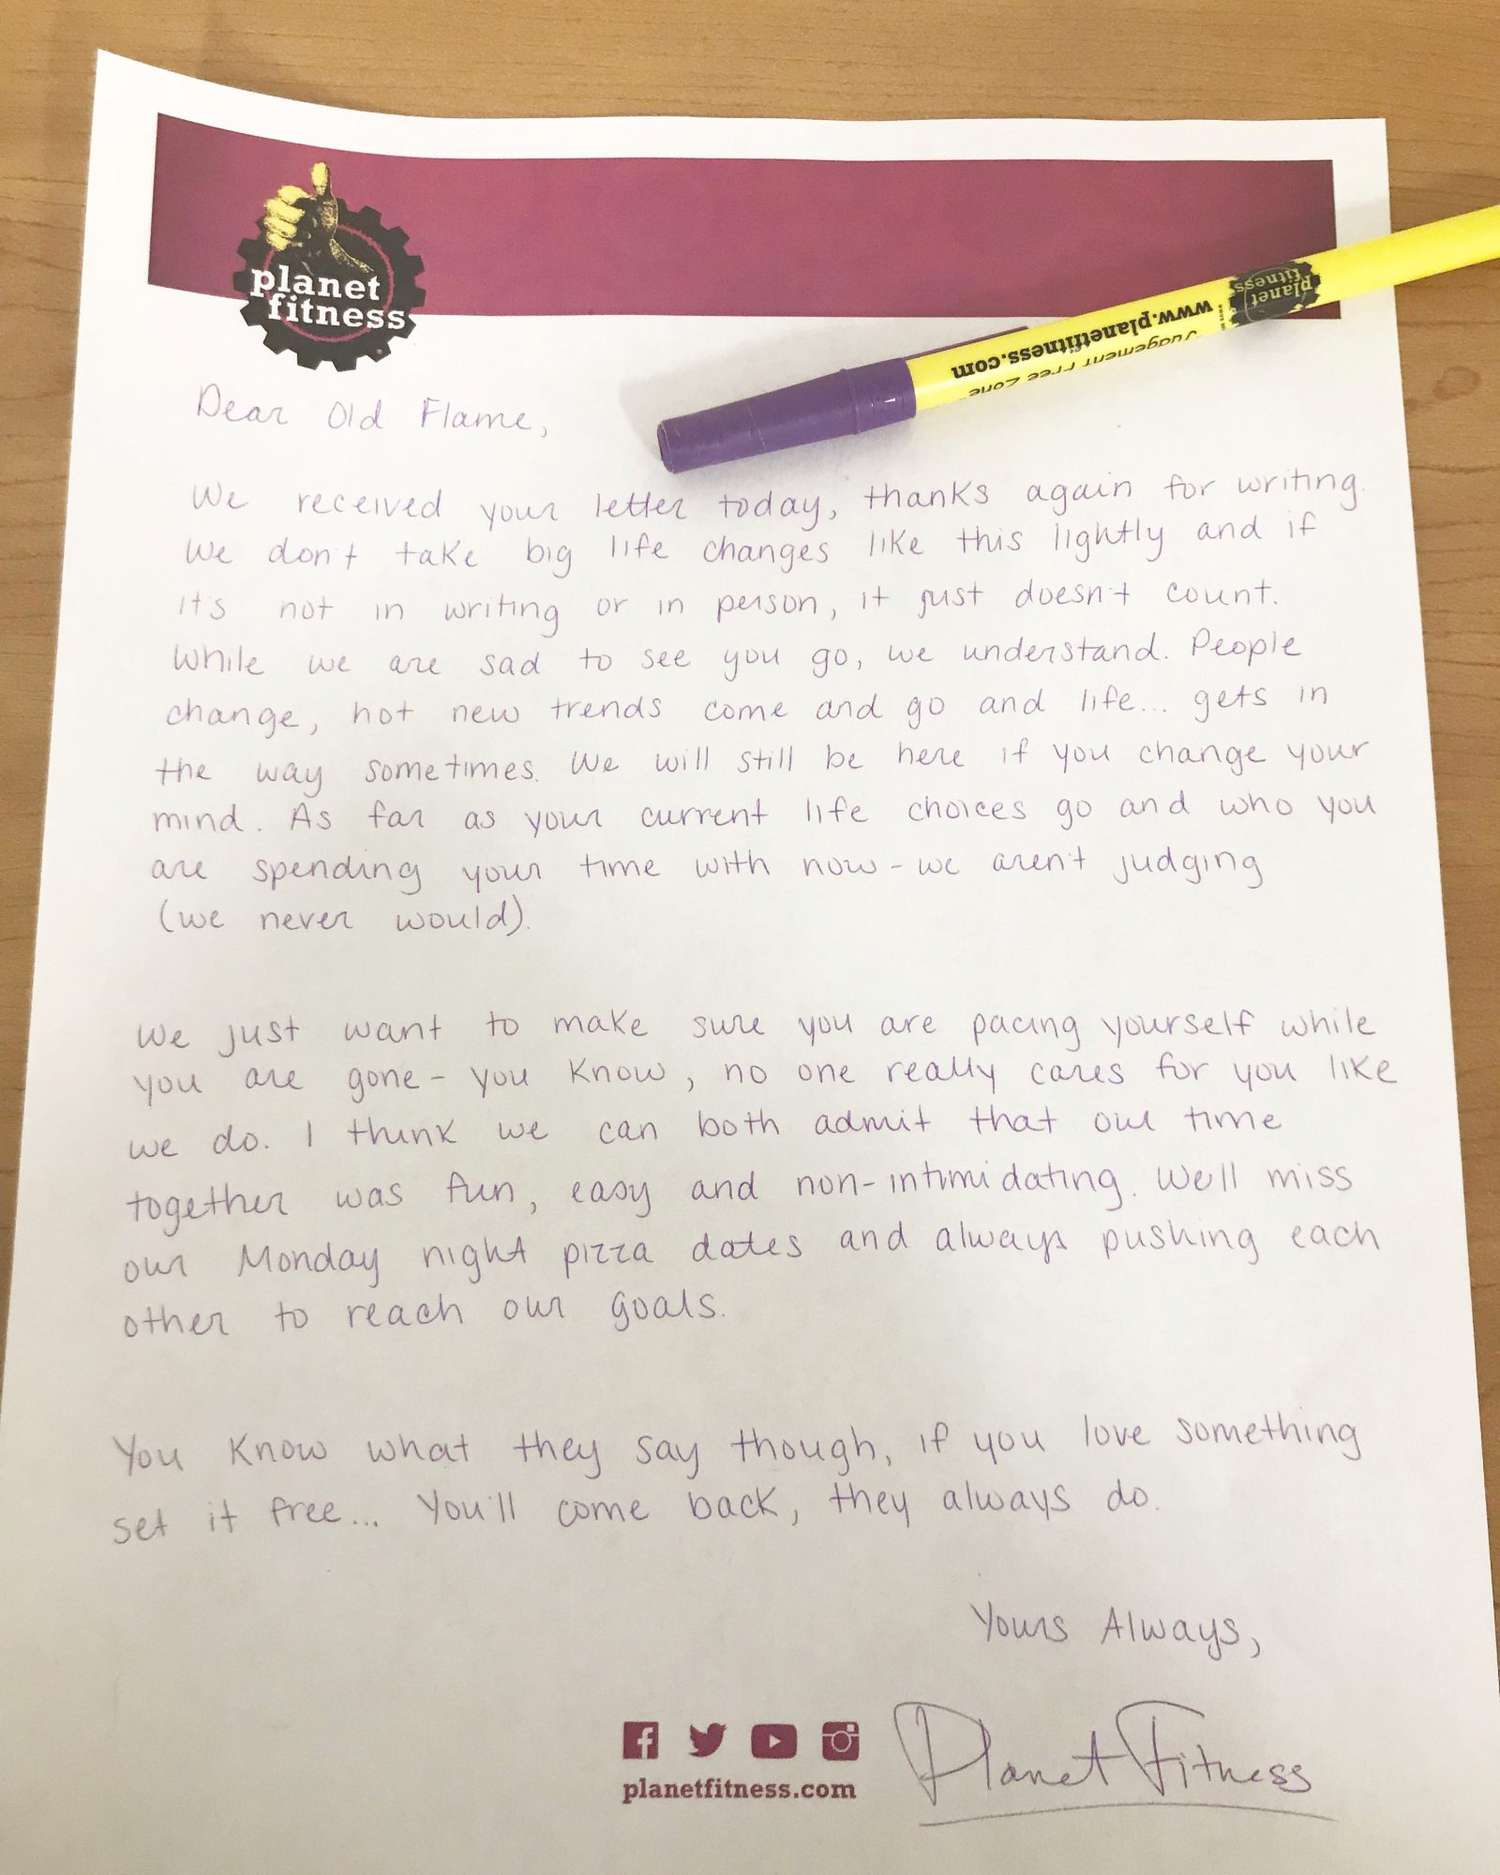 planet
fitness
planet
fitness
www.planetfitness.com
Judgement Free Zone
Dear Old Flame,
We received your letter today, thanks again for writing.
We don't take big life changes like this lightly and if
it's not in writing or in person, it just doesn't count.
While we are sad to see you go, we understand. People
change, hot new trends come and go and life... gets in
the way sometimes. We will still be here if you change your
mind. As far as your current life choices go and who you
are spending your time with now - we aren't judging
(we never would).
We just want to make sure you are pacing yourself while
you are gone - you know, no one really cares for you like
we do. I think we can both admit that our time
together was fun, easy and non-intimidating. We'll miss
our Monday night pizza dates and always pushing each
other to reach our goals.
You know what they say though, if you love something
set it free... You'll come back, they always do.
Yours Always,
Planet Fitness
planetfitness.com